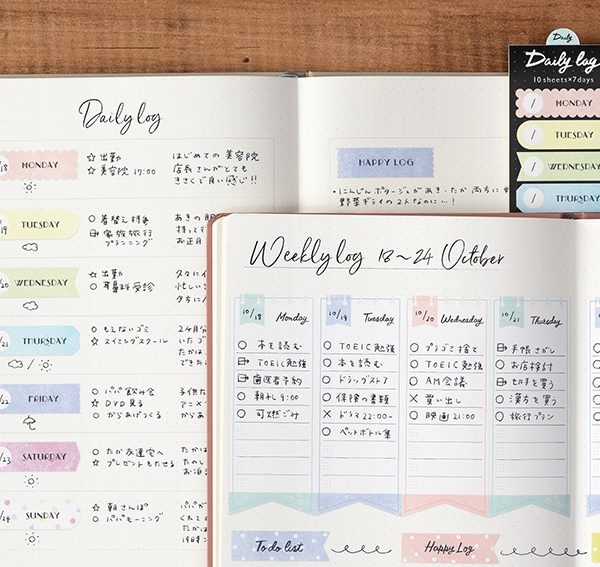 Daily log
18 MONDAY
☆ 出勤
☆ 美容院 17:00
はじめての 美容院
店長さんがとても
きさくで良い感じ!!
19 TUESDAY
○ 着替え持参
家族旅行
プランニング
あきの服
持って行
お正月
20 WEDNESDAY
☆ 出勤
○ 耳鼻科受診
久々に
忙しい
夕方に
21 THURSDAY
○ もえないゴミ
☆ スイミングスクール
24歳
いたづ
たかは
できた
22 FRIDAY
○ パパ飲み会
☆ DVD見る
○ からあげつくる
子供た
アニメ
からあ
23 SATURDAY
○ たか友達宅へ
☆ プレゼントもたせる
たかは
たのし
お泊ま
24 SUNDAY
☆ 朝さんぽ
○ パパモーニング
パパが
くれて
たかは
19時
HAPPY LOG
・にんじんポタージュがあき・たか両方に
野菜ギライの2人なのに…!
Daily
Daily log
10 sheets×7days
/ MONDAY
/ TUESDAY
/ WEDNESDAY
/ THURSDAY
Weekly log 18〜24 October
10/18 Monday
○ 本を読む
TOEIC勉強
歯医者予約
○ 朝礼 9:00
○ 可燃ごみ
10/19 Tuesday
○ TOEIC勉強
○ 本を読む
○ ドラッグストア
○ 保険の書類
× ドラマ 22:00-
○ ペットボトル集
10/20 Wednesday
○ プラゴミ捨て
○ TOEIC勉強
○ AM会議
× 買い出し
○ 映画 21:00
10/21 Thursday
手帳さがし
○ お店検討
切手を買う
○ 漢方を買う
○ 旅行プラン
To do list
Happy Log